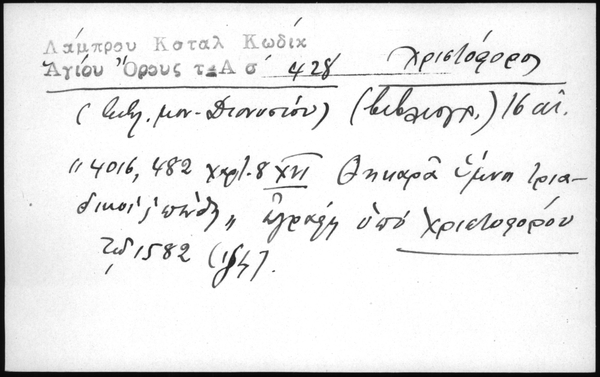 Λάμπρου Κοταλ Κωδικ
Ἁγίου Ὄρους τ-Α σ 428 Χριστόφορος
(βιβλ. μον. Διονυσίου) (βιβλιογρ.) 16 αἰ.
"4016, 482 χαρτ. 8 XVI Θηκαρᾶ ὕμνοι τρια-
δικοί " ἐγράφη ὑπό Χριστοφόρου
τῷ 1582